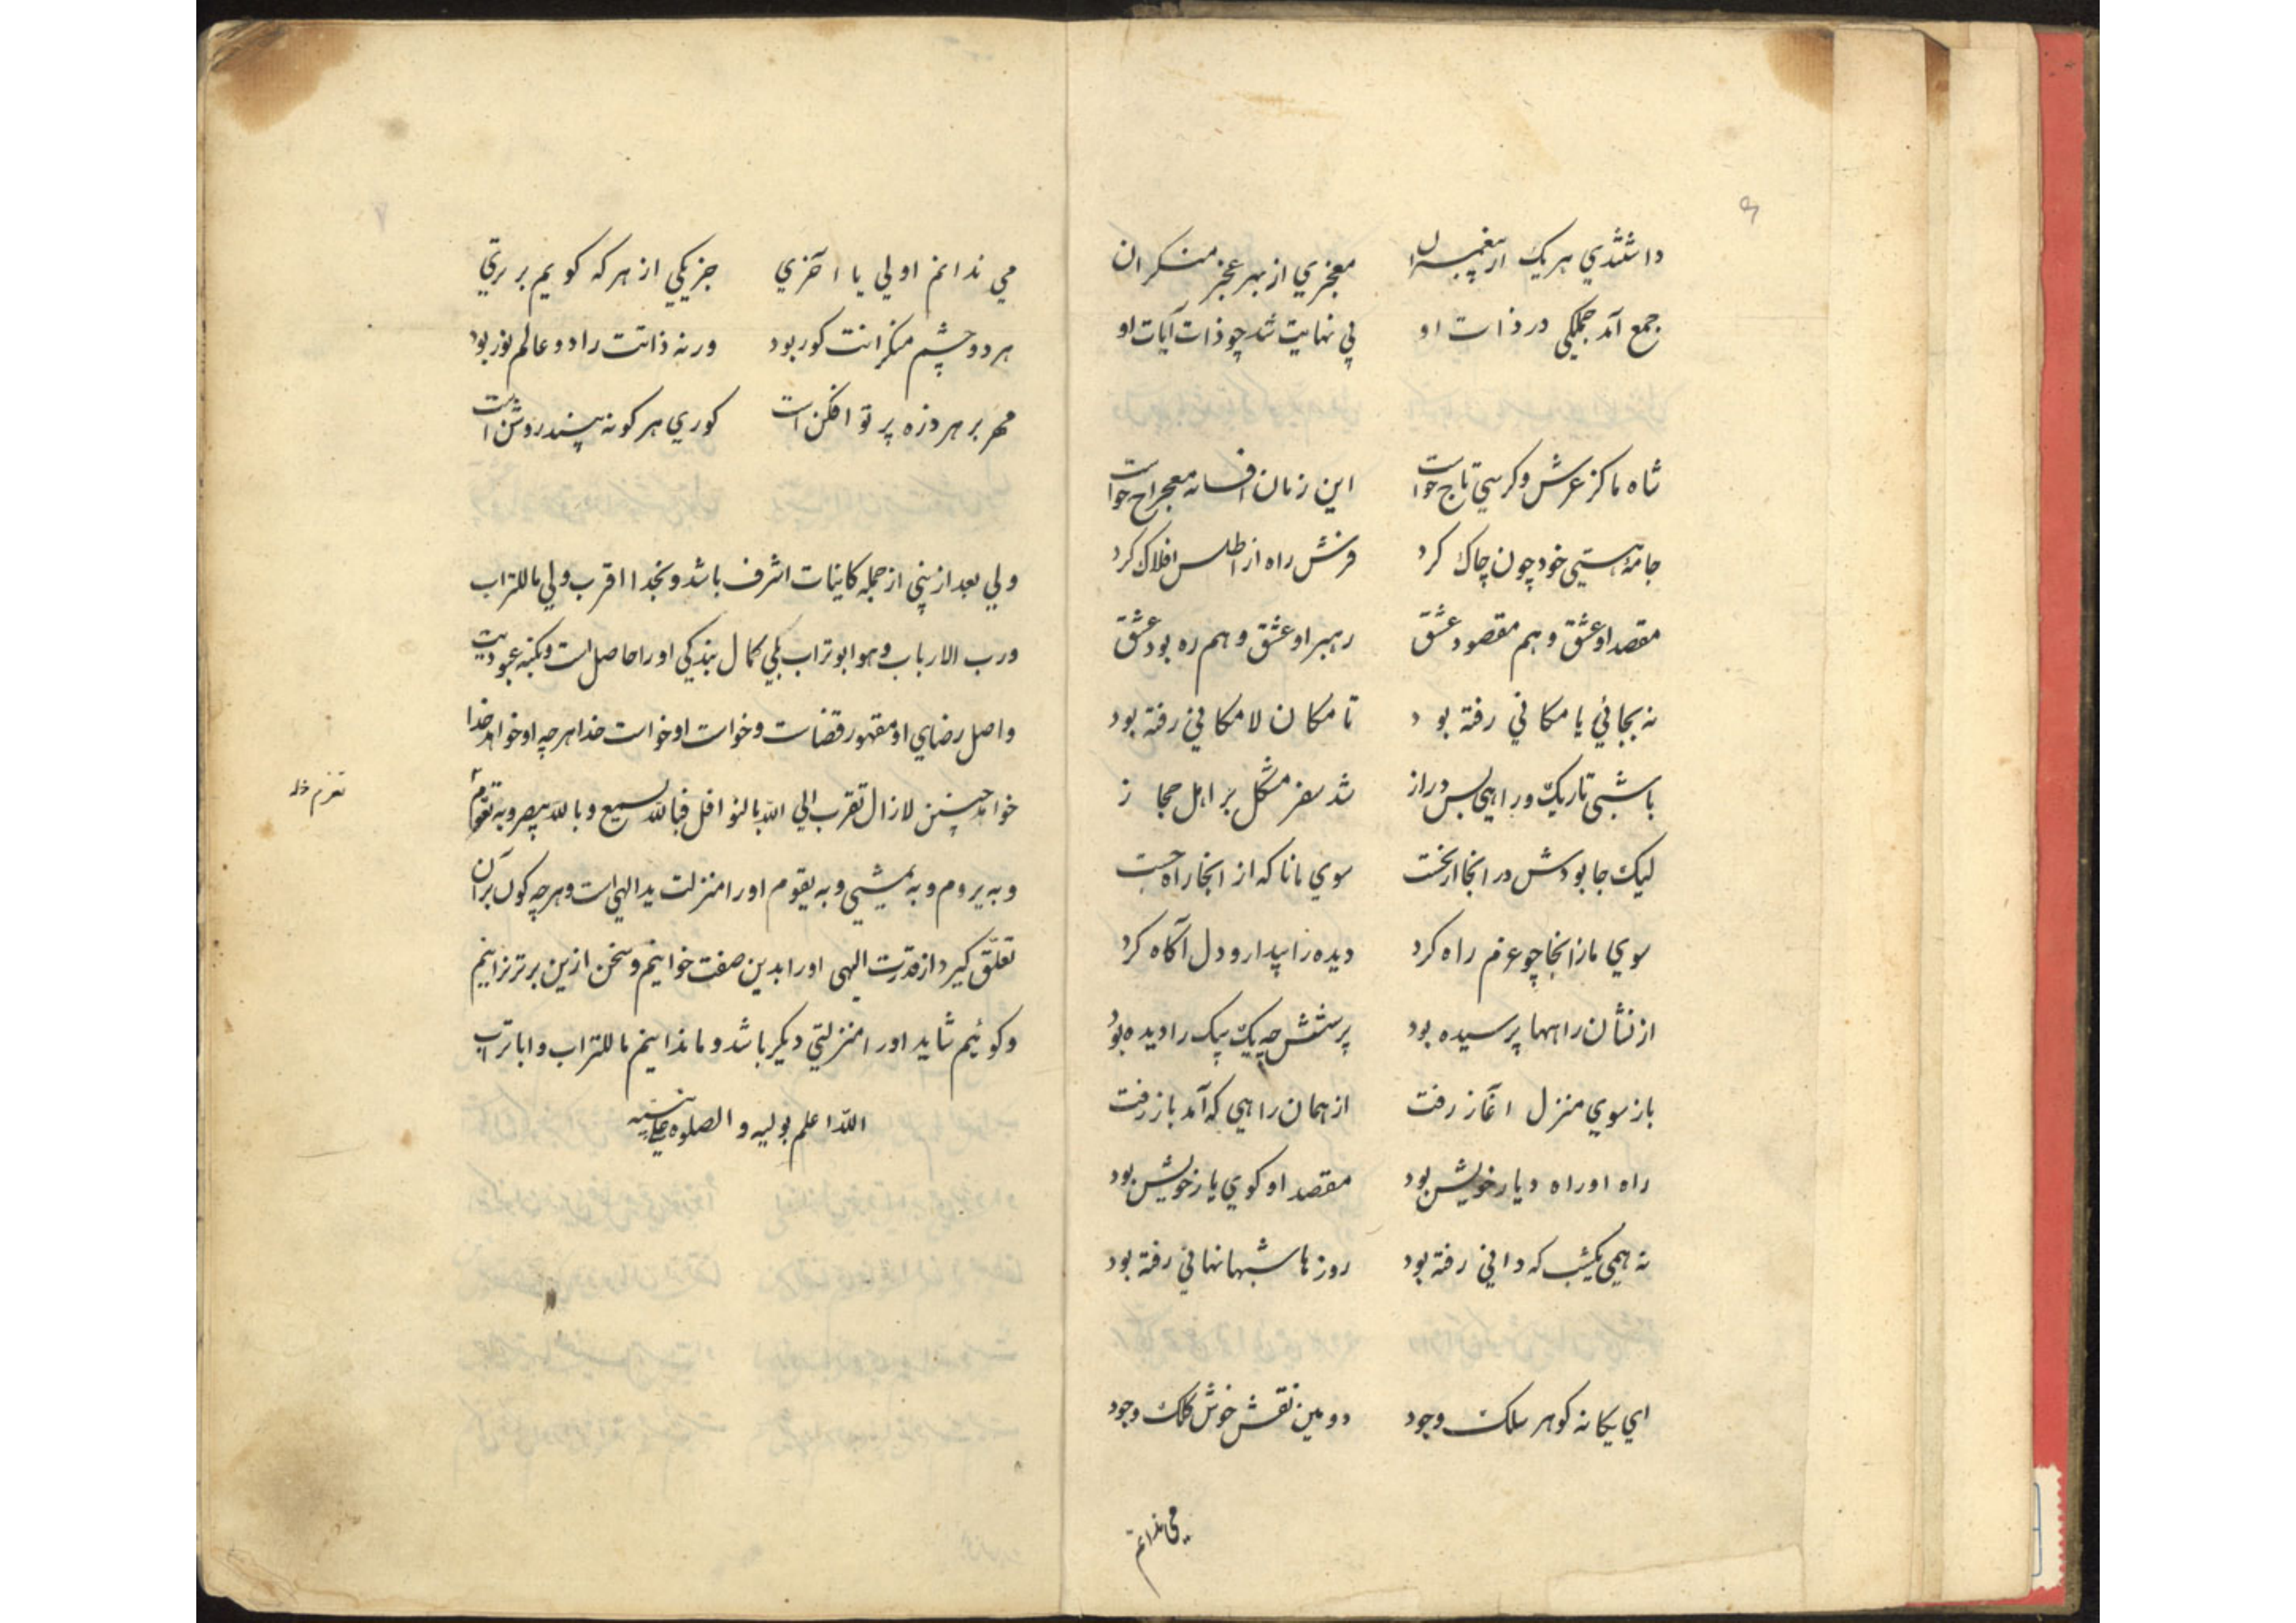 داشتندي هر يك از پيغمبران معجزي از بهر عجز منكران
جمع آمد جملكي در ذات او بي نهايت شد چو ذات آيات او
شاه ما كز عرش و كرسي تاج خواست اين زمان افسانه معراج خواست
جامه هستيي خود چون چاك كرد فرش راه از اطلس افلاك كرد
مقصد او عشق و هم مقصود عشق رهبر او عشق و هم ره بود عشق
نه بجائي يا مكاني رفته بود تا مكان لامكاني رفته بود
با شبي تاريك و راهي بس دراز شد سفر مشكل بر اهل حجاز
ليك جا بودش در انجا از نخست سوي مانا كه از انجا راه جست
سوي ما زانجا چو عزم راه كرد ديده را بيدار و دل آكاه كرد
از نشان راهها پرسيده بود پرسشش چه يك بيك را ديده بود
باز سوي منزل اغاز رفت از همان راهي كه آمد باز رفت
راه او راه ديار خويش بود مقصد او كوي يار خويش بود
نه همي يكشب كه داني رفته بود روزها شبها نهاني رفته بود
اي يكانه كوهر سلك وجود دومين نقش خوش كلك وجود
مي ندانم
مي ندانم اولي يا اخري جز يكي از هر كه كويم برتري
هر دو چشم منكرانت كور بود ورنه ذاتت را دو عالم نور بود
مهر بر هر ذره پرتو افكن است كوري هر كو نه بيند روشن است
ولي بعد از نبي از جمله كاينات اشرف باشد و بخدا اقرب ولي ما للتراب
ورب الارباب وهو ابوتراب بلي كمال بندكي او را حاصل است و بكنه عبوديت
واصل رضاي او مقهور قضات و خواست او خواست خدا هر چه او خواهد خدا
خواهد چنين لازال تقرب الي الله بالنوافل فبالله يسمع و بالله يبصر و به
و به يروم و به يمشي و به يقوم او را منزلت يد الهي است و هر چه كون بر آن
تعلق كيرد از قدرت الهي او را بدين صفت خوانيم و سخن ازين برتر نرانيم
و كوئيم شايد او را منزلتي ديكر باشد و ما ندانيم ما للتراب و ابا تراب
الله اعلم بوليه و الصلوه علي نبيه